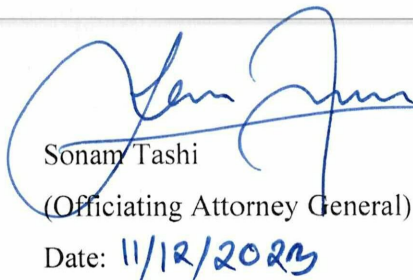 Sonam Tashi
(Officiating Attorney General)
Date: 11/12/2023